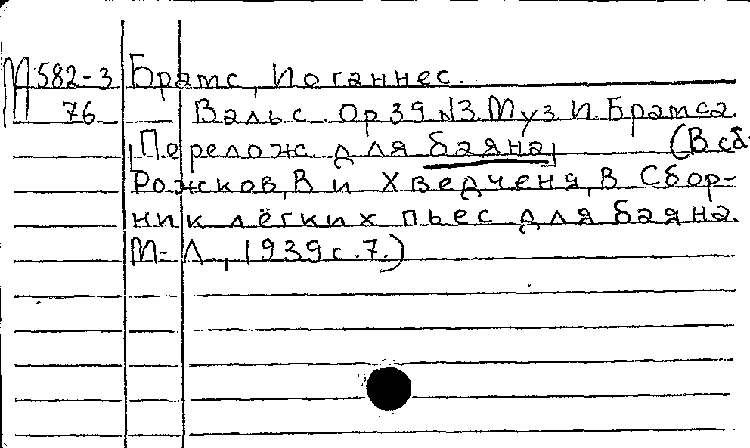 М582-3 Брамс, Иоганнес.
76 Вальс. Op39 №3. Муз И. Брамса.
[Перелож для баяна] (В сб:
Рожков, В и Хведченя, В Сбор-
ник лёгких пьес для баяна.
М-Л, 1939 с. 7.)